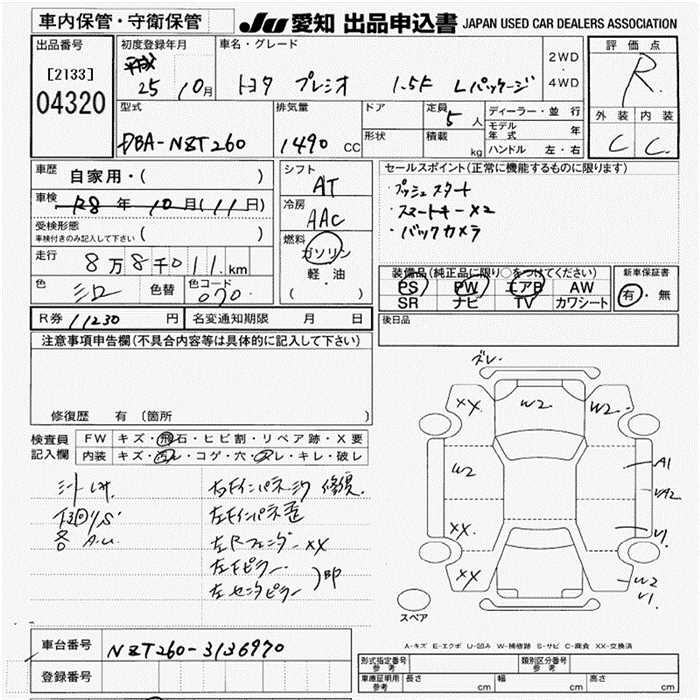 車内保管・守衛保管
JU 愛知 出品申込書 JAPAN USED CAR DEALERS ASSOCIATION
出品番号
[2133]
04320
初度登録年月
平成
25 10月
車名・グレード
トヨタ プレミオ 1.5F Lパッケージ
2WD
4WD
評価点
R
外装 内装
C C
型式
DBA-NZT260
排気量
1490 CC
ドア
形状
定員
5人
積載
kg
ディーラー・並行
モデル年式 年
ハンドル 左・右
車歴
自家用・( )
車検
R8年10月(11日)
受検形態
車検付きのみ記入して下さい ( )
走行
8万8千011km
色
シロ
色替
色コード
070
シフト
AT
冷房
AAC
燃料
ガソリン
軽・油
( )
セールスポイント(正常に機能するものに限ります)
・プッシュスタート
・スマートキー×2
・バックカメラ
装備品(純正品に限り○をつけてください)
PS PW エアB AW
SR ナビ TV カワシート
新車保証書
有・無
R券 11230円
名変通知期限 月 日
後日品
注意事項申告欄(不具合内容等は具体的に記入して下さい)
修復歴 有 〔箇所
検査員記入欄
FW キズ・飛石・ヒビ割・リペア跡・X要
内装 キズ・汚レ・コゲ・穴・スレ・キレ・破レ
シートレス.
下回り/S
各 A.U
右Fインパネシワ 修復.
左Fインパネ歪
左Rフェンダー XX
左Fピラー
左センタピラー )部
ズレ
XX
W2
W2
W2
XX
XX
A1
VA2
V1
W2
V1
スペア
A-キズ E-エクボ U-凹み W-補修跡 S-サビ C-腐食 XX-交換済
車台番号
NZT260-3136970
登録番号
形式指定番号 参考
類別区分番号 参考
車庫証明用 参考
長さ cm 幅 cm 高さ cm